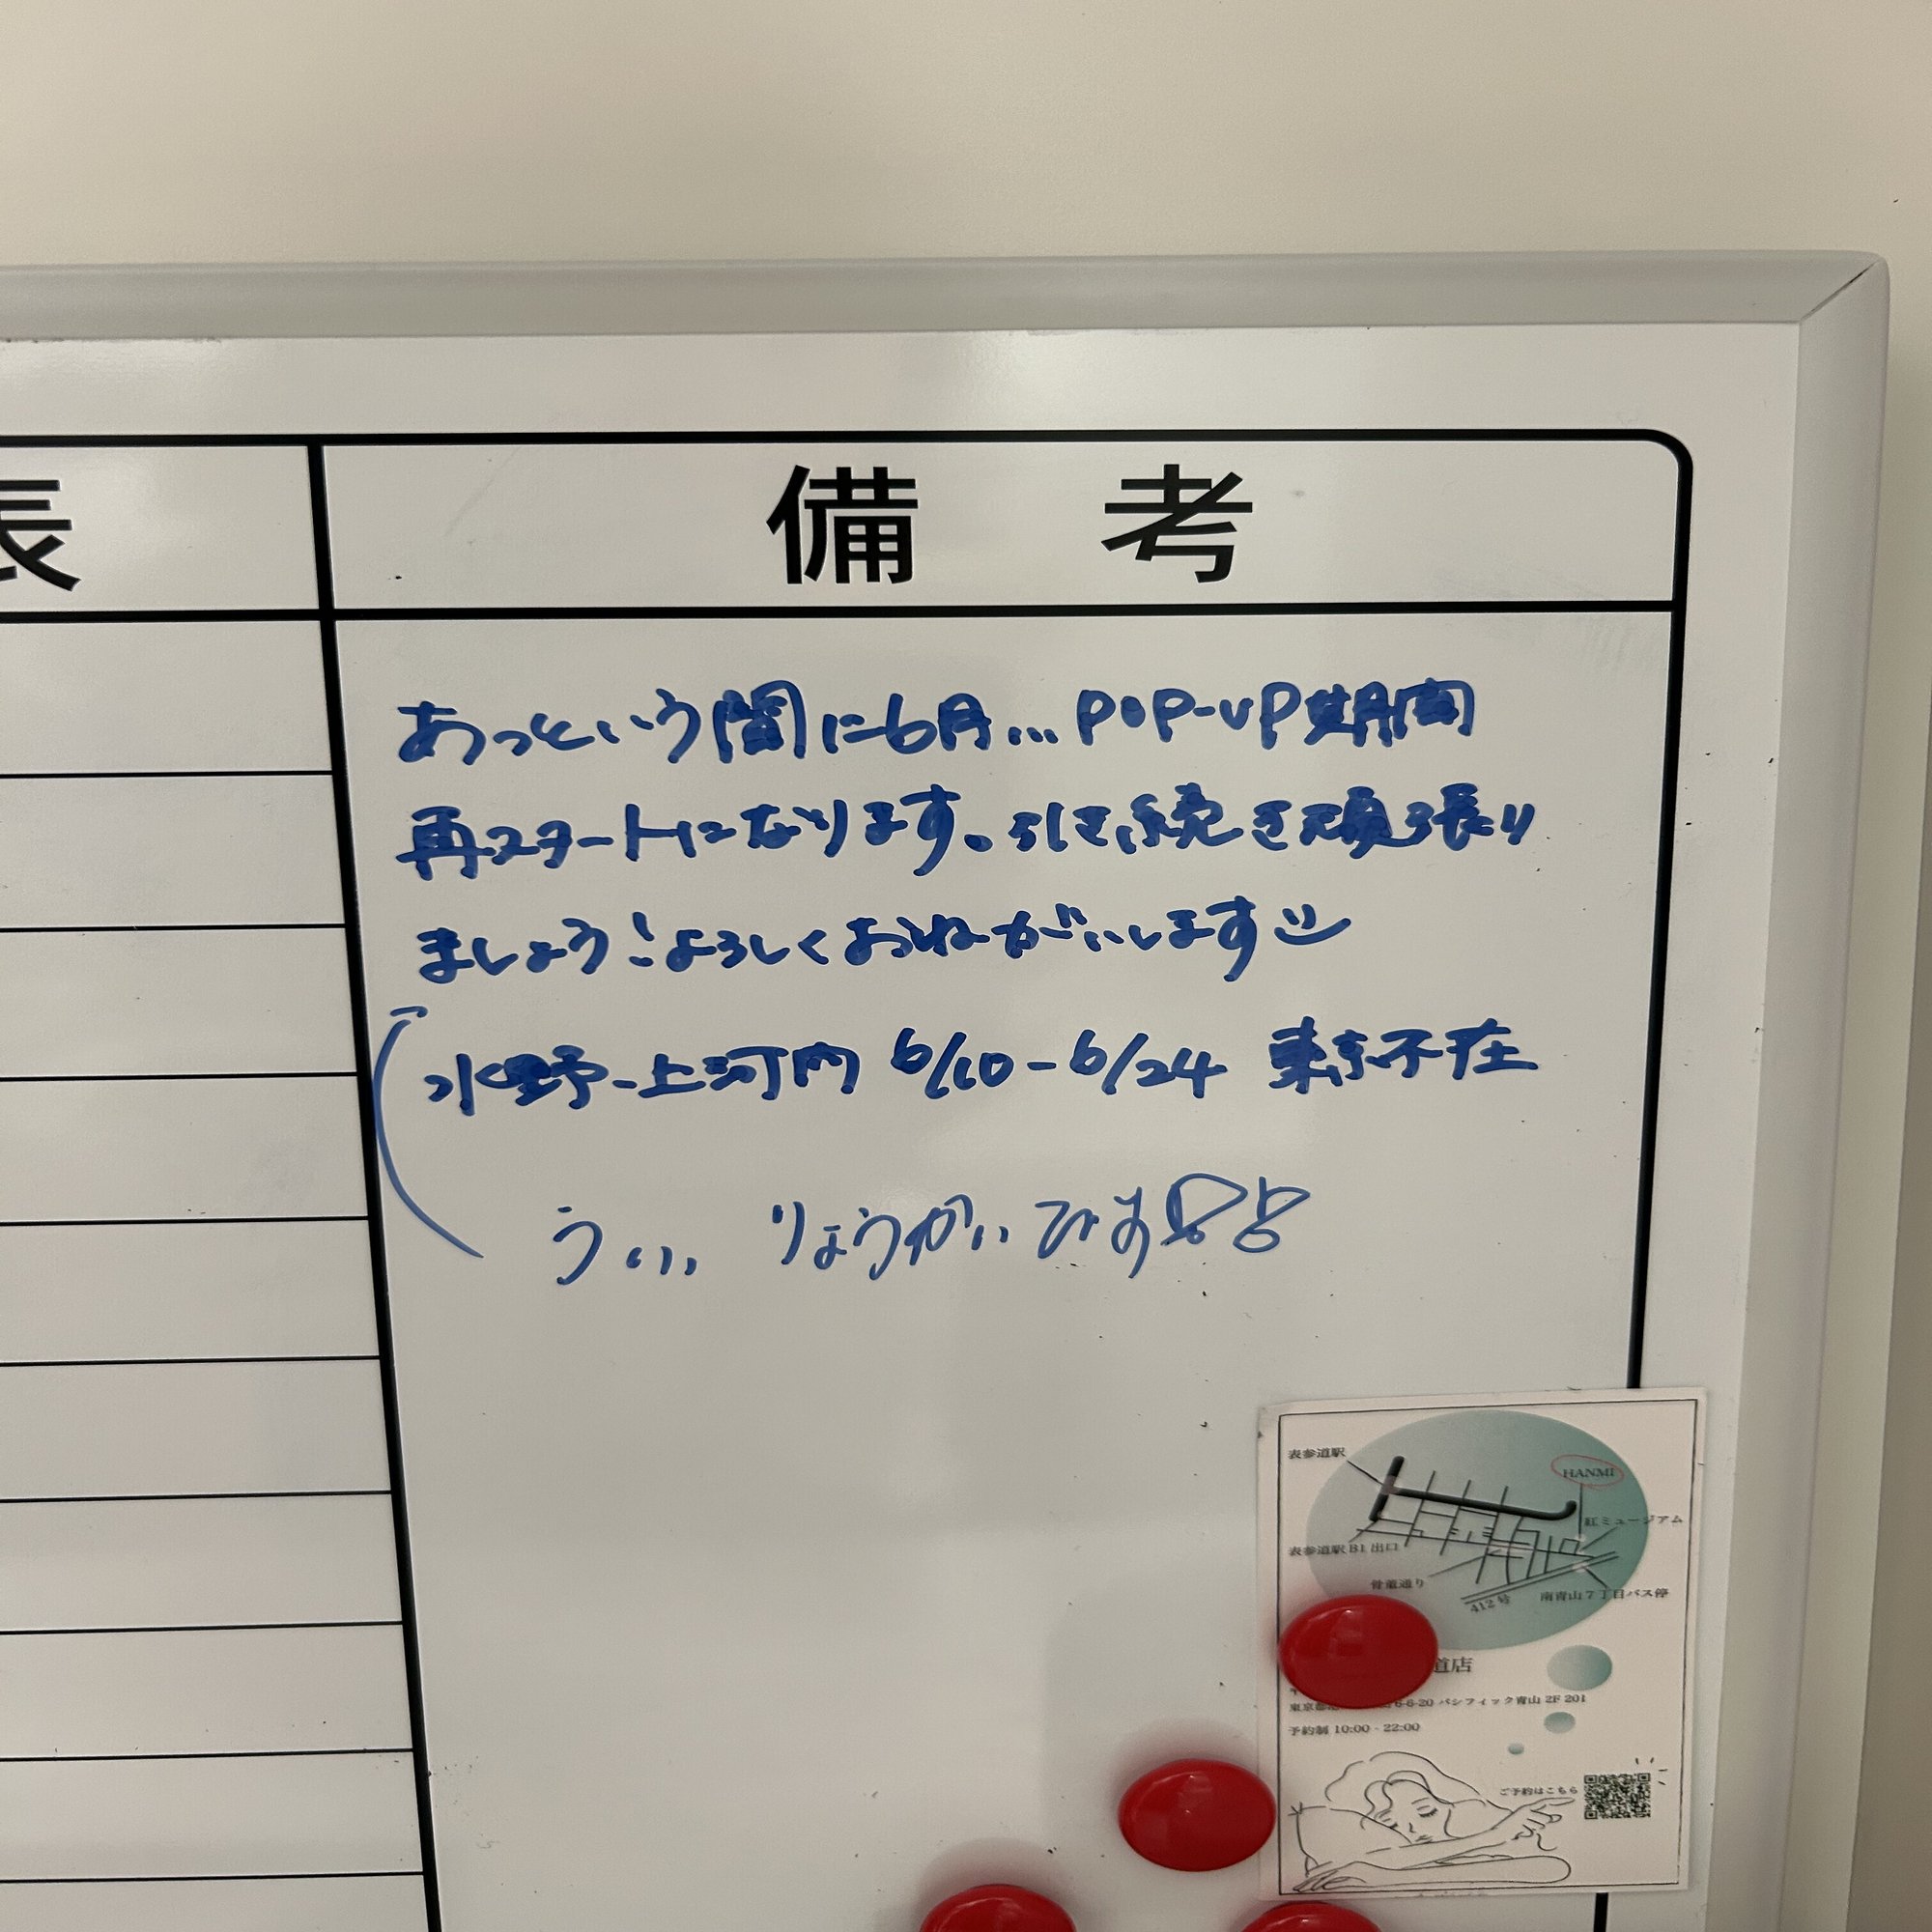 表
備考
あっという間に6月... POP-UP期間
再スタートになります。引き続き頑張り
ましょう！よろしくおねがいします
水野-上河内 6/10-6/24 東京不在
うぃ、 りょうかいです!!
表参道駅
HANMI
紅ミュージアム
表参道駅B1出口
骨董通り
412号
南青山7丁目バス停
道店
6-6-20 パシフィック青山 2F 201
予約制 10:00 - 22:00
ご予約はこちら